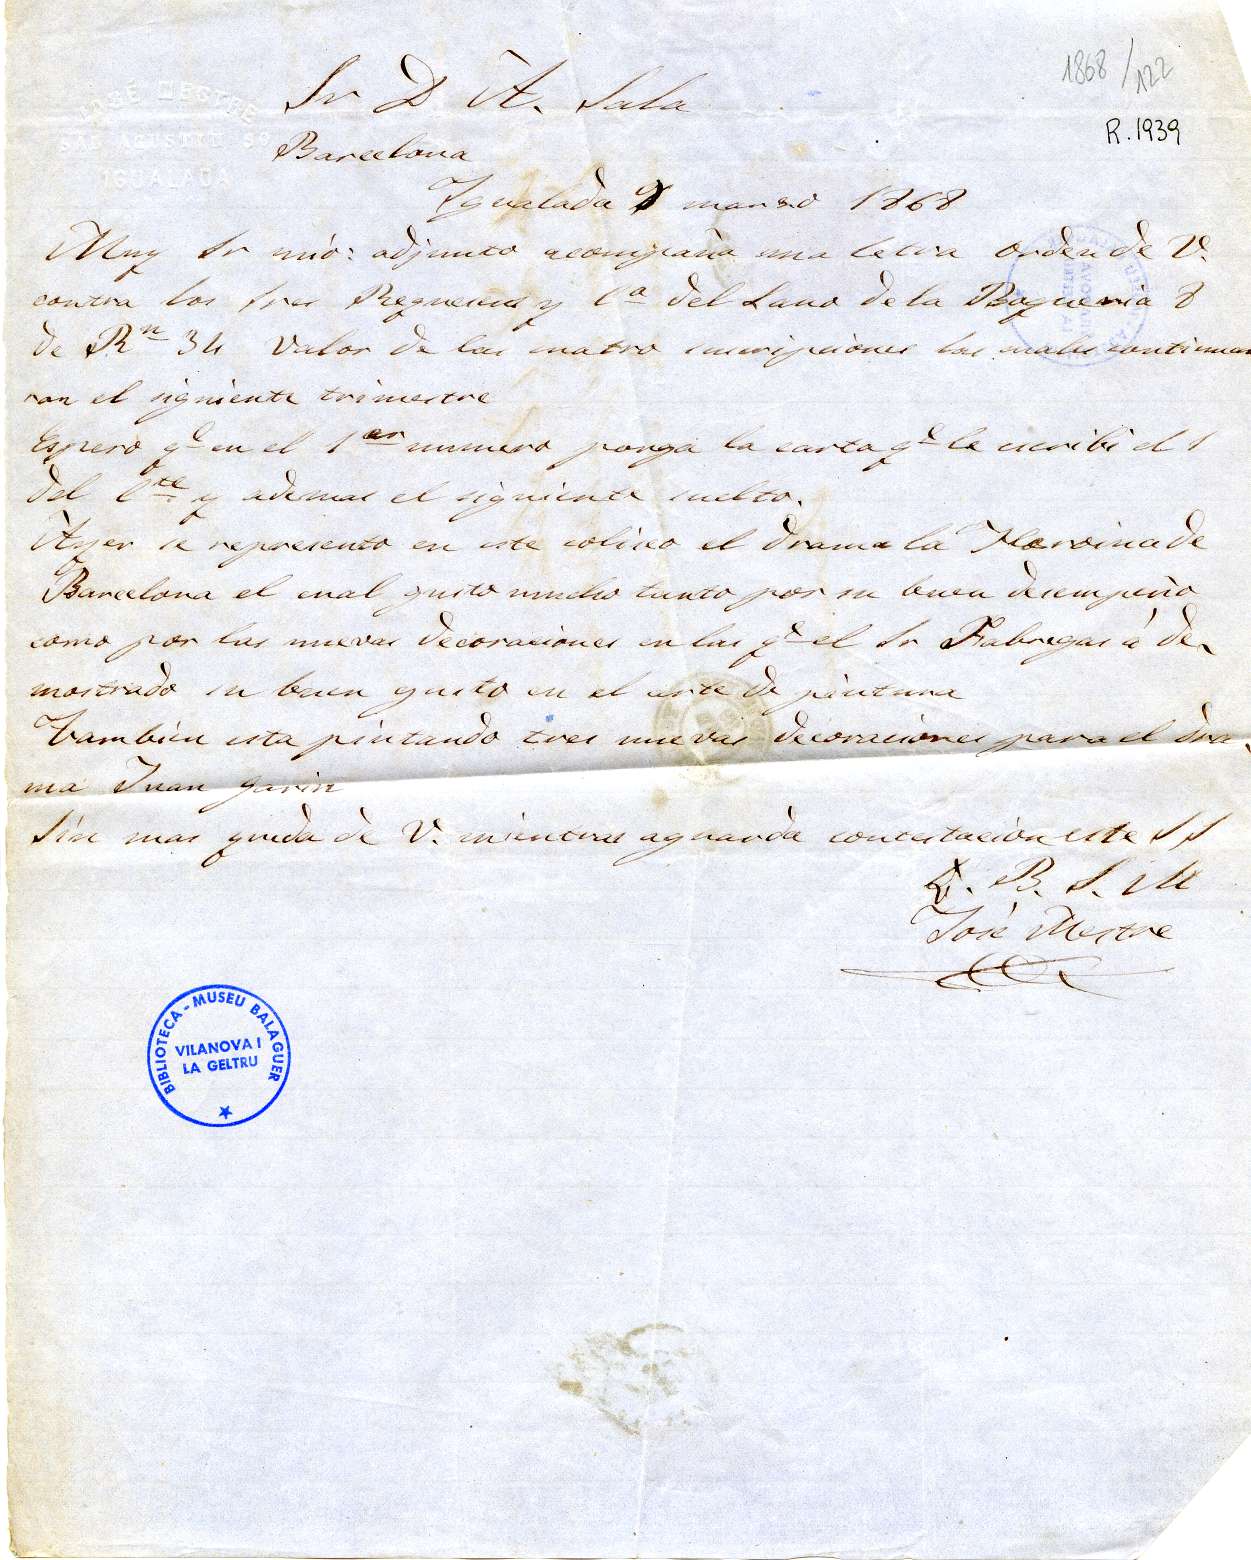 1868/122
R. 1939
JOSÉ MESTRE
SAN AGUSTIN 59
IGUALADA
Sr D A. Sala
Barcelona
Igualada 9 marzo 1868
Muy Sr mio: adjunto acompaña una letra orden de V.
contra los Sres Requesens y Cª del Lano de la Boqueria 8
de Rn 34 valor de las cuatro suscripciones las cuales continuan
ran el siguiente trimestre
Espero qe en el 1er numero ponga la carta qe le escribi el 1
del Cte y ademas el siguiente suelto.
Ayer se represento en este coliseo el drama la Heroina de
Barcelona el cual gusto mucho tanto por su buen desempeño
como por las nuevas decoraciones en las qe el Sr Fabregas á de-
mostrado su buen gusto en el arte de pintura
Tambien esta pintando tres nuevas decoraciones para el dra-
ma Juan Garin
Sin mas queda de V. mientras aguarda contestacion este S S
Q. B. S. M
José Mestre
BIBLIOTECA - MUSEU BALAGUER
VILANOVA I
LA GELTRU